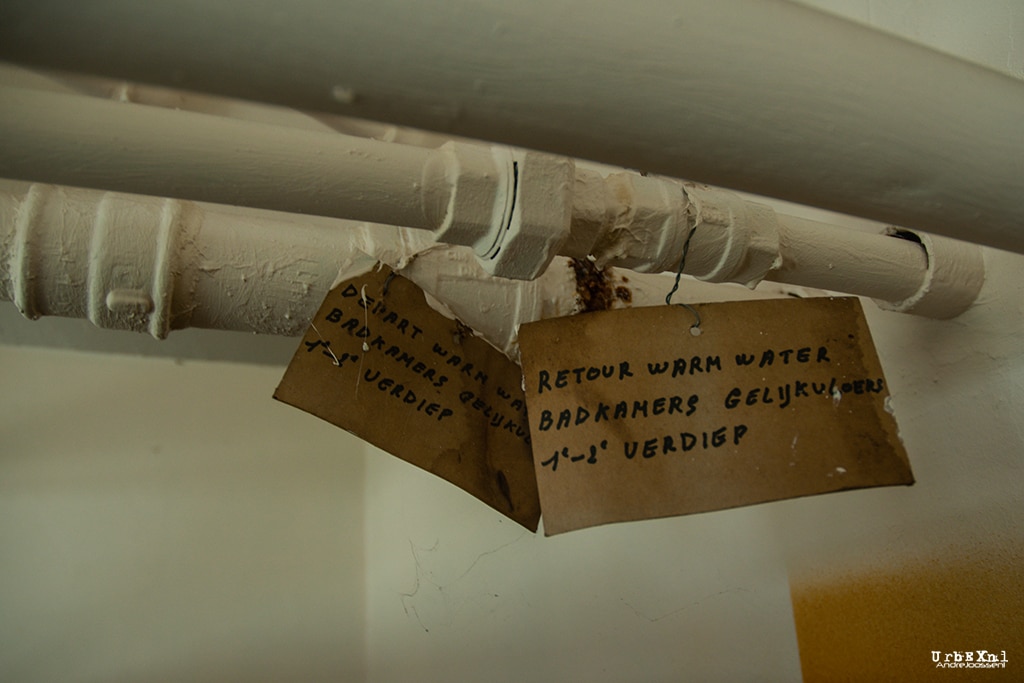 DEPART WARM WA
BADKAMERS GELIJKVL
1e-2e VERDIEP
RETOUR WARM WATER
BADKAMERS GELIJKVLOERS
1e-2e VERDIEP
UrbEXnl
AndreJoosse.nl